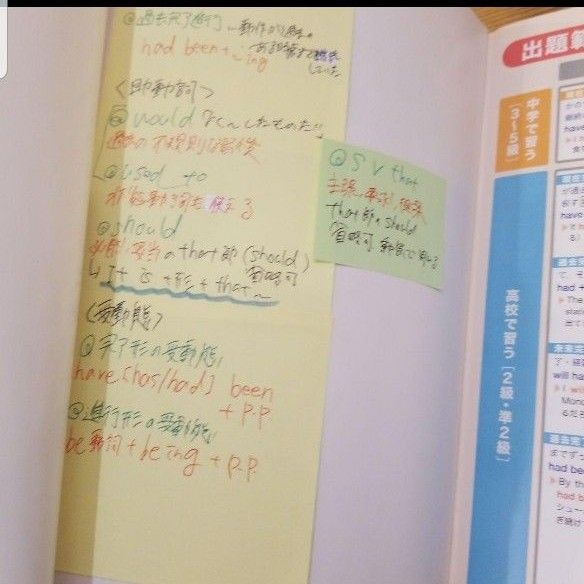 @過去完了進行 …動作が過去の
ある時点まで継続していた
had been + ~ing
<助動詞>
@would よく~したものだ
過去の不規則な習慣
@used to
状態動詞も使える
@should
必要、妥当のthat節 (should)
省略可
↳ It is + 形 + that ~
<受動態>
@完了形の受動態
have [has/had] been
+ P.P
@進行形の受動態
be動詞 + being + P.P
@ S V that
主張、要求、提案
that節のshould
省略可
出題範
中学で習う
[3~5級]
高校で習う [2級・準2級]
had +
will ha
had be
By th
had b